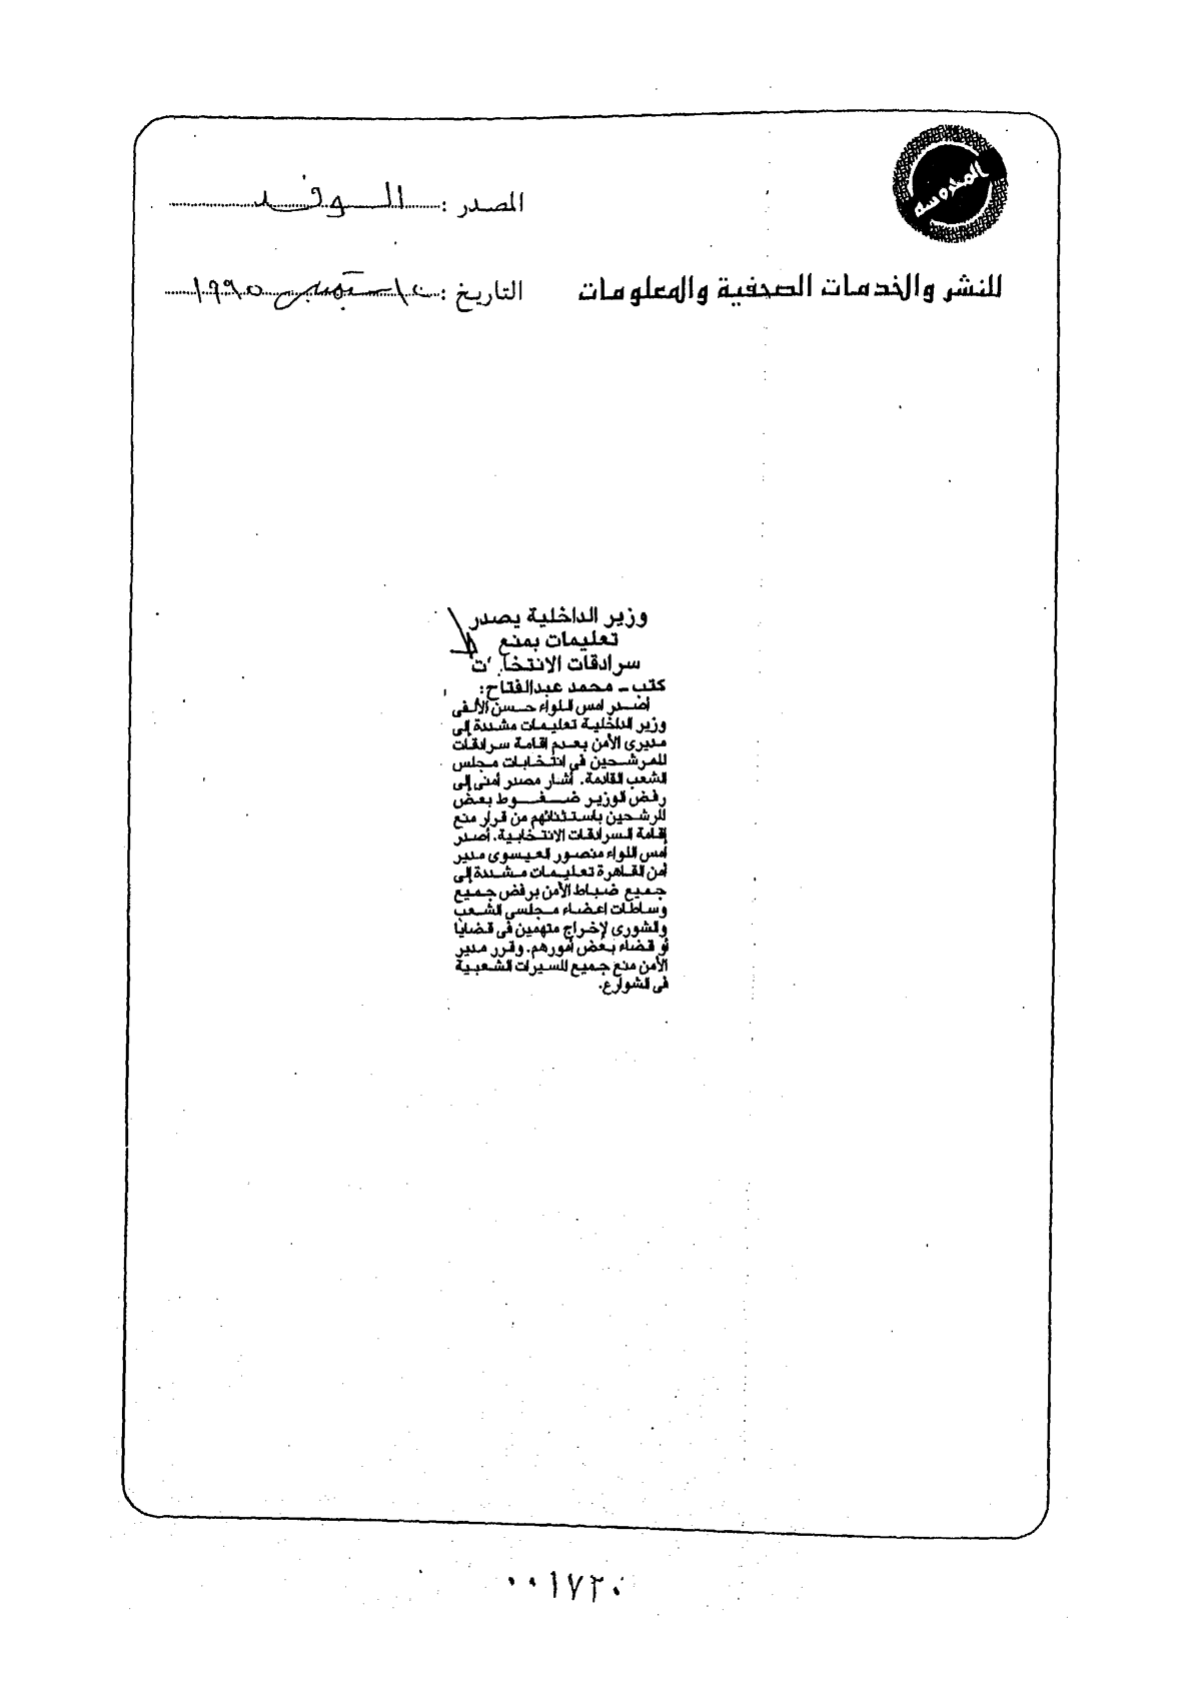 المحروسة
المصدر : الوفد
للنشر والخدمات الصحفية والمعلومات
التاريخ : سبتمبر ١٩٩٥
وزير الداخلية يصدر
تعليمات بمنع
سرادقات
كتب ـ محمد عبدالفتاح:
أصدر امس اللواء حسن الألفى
وزير الداخلية تعليمات مشددة إلى
مديرى الأمن بعدم إقامة سرادقات
للمرشحين فى انتخابات مجلس
الشعب القادمة. أشار مصدر أمنى إلى
رفض الوزير ضغوط بعض
المرشحين باستثنائهم من قرار منع
إقامة السرادقات الانتخابية. أصدر
أمس اللواء منصور العيسوى مدير
أمن القاهرة تعليمات مشددة إلى
جميع ضباط الأمن برفض جميع
وساطات اعضاء مجلسى الشعب
والشورى لإخراج متهمين فى قضايا
أو قضاء بعض أمورهم. وقرر مدير
الأمن منع جميع المسيرات الشعبية
فى الشوارع.